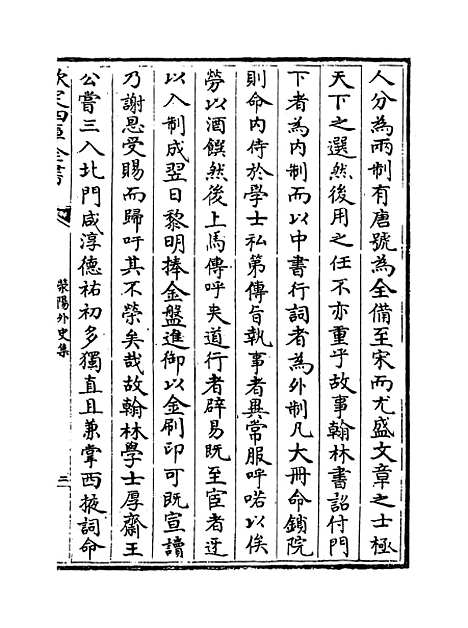 人分為兩制有唐號為全備至宋而尤盛文章之士極
天下之選然後用之任不亦重乎故事翰林書詔付門
下者為内制而以中書行詞者為外制凡大冊命鎖院
則命内侍於學士私第傳旨執事者具常服呼喏以俟
勞以酒饌然後上馬傳呼夾道行者辟易既至宦者迓
以入制成翌日黎明捧金盤進御以金刷印可既宣讀
乃謝恩受賜而歸吁其不榮矣哉故翰林學士厚齋王
公嘗三入北門咸淳德祐初多獨直且兼掌西掖詞命
欽定四庫全書
滎陽外史集
三